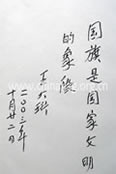 国旗是国家文明
的象徵
二〇〇三年
十月廿二日